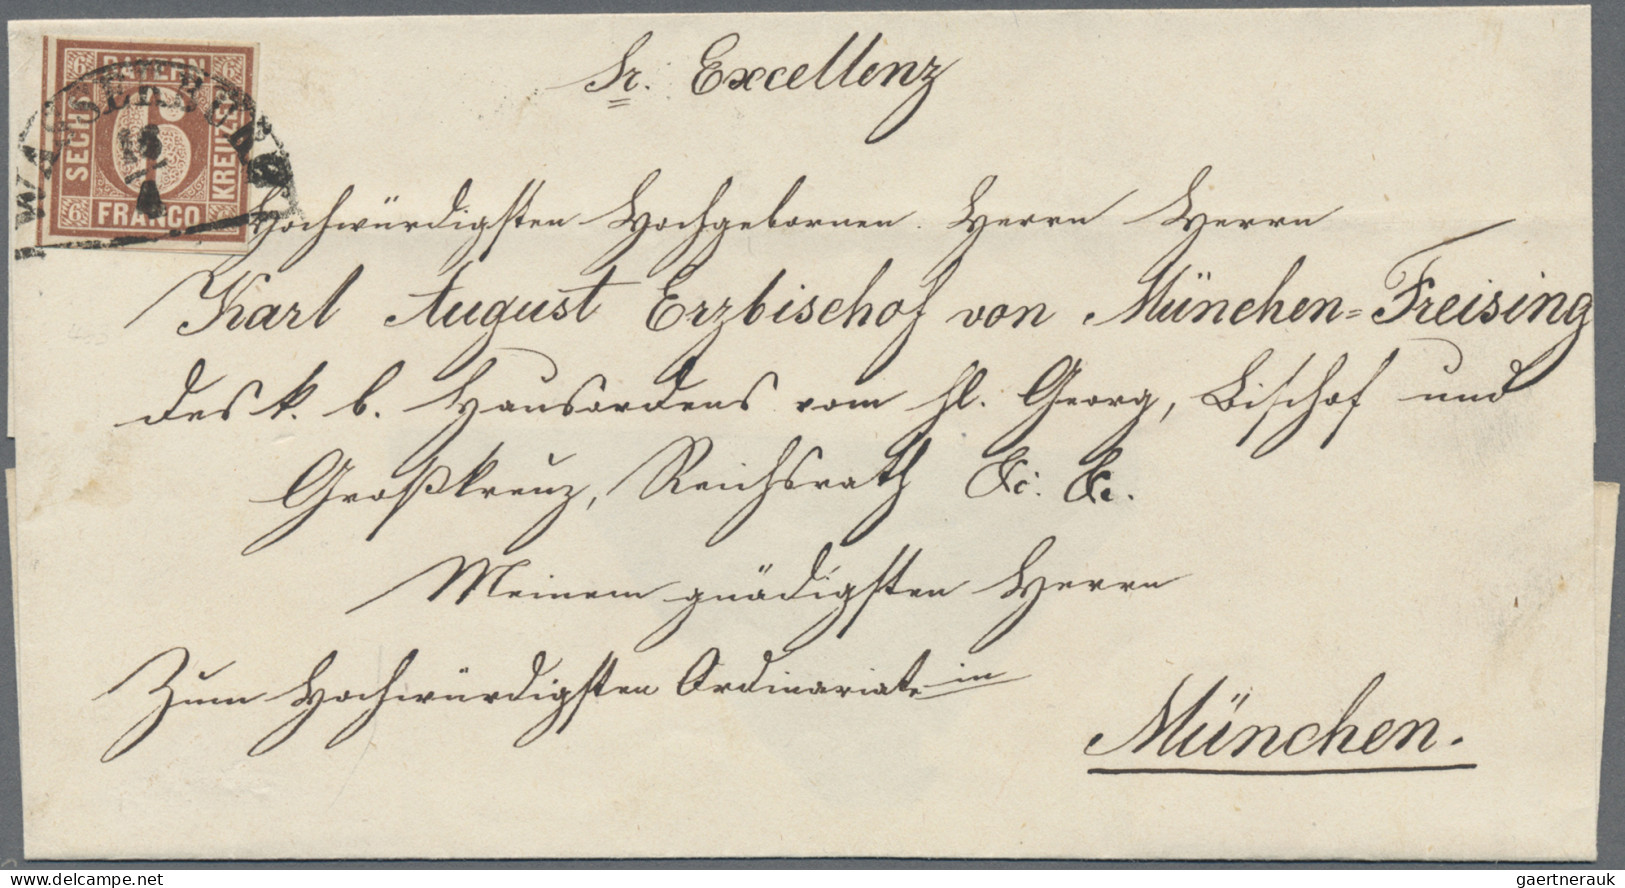 Sr. Excellenz
BAYERN
6 6
SECHS
KREUZER
6 6
FRANCO
6
WASSERBURG
Hochwürdigsten Hochgebornen Herrn Herrn
Karl August Erzbischof von München=Freising
des k. b. Hausordens vom hl. Georg, Bischof und
Großkreuz, Reichsrath &c. &c.
Meinem gnädigsten Herrn
Zum Hochwürdigsten Ordinariate in
München.
delcampe.net
gaertnerauk